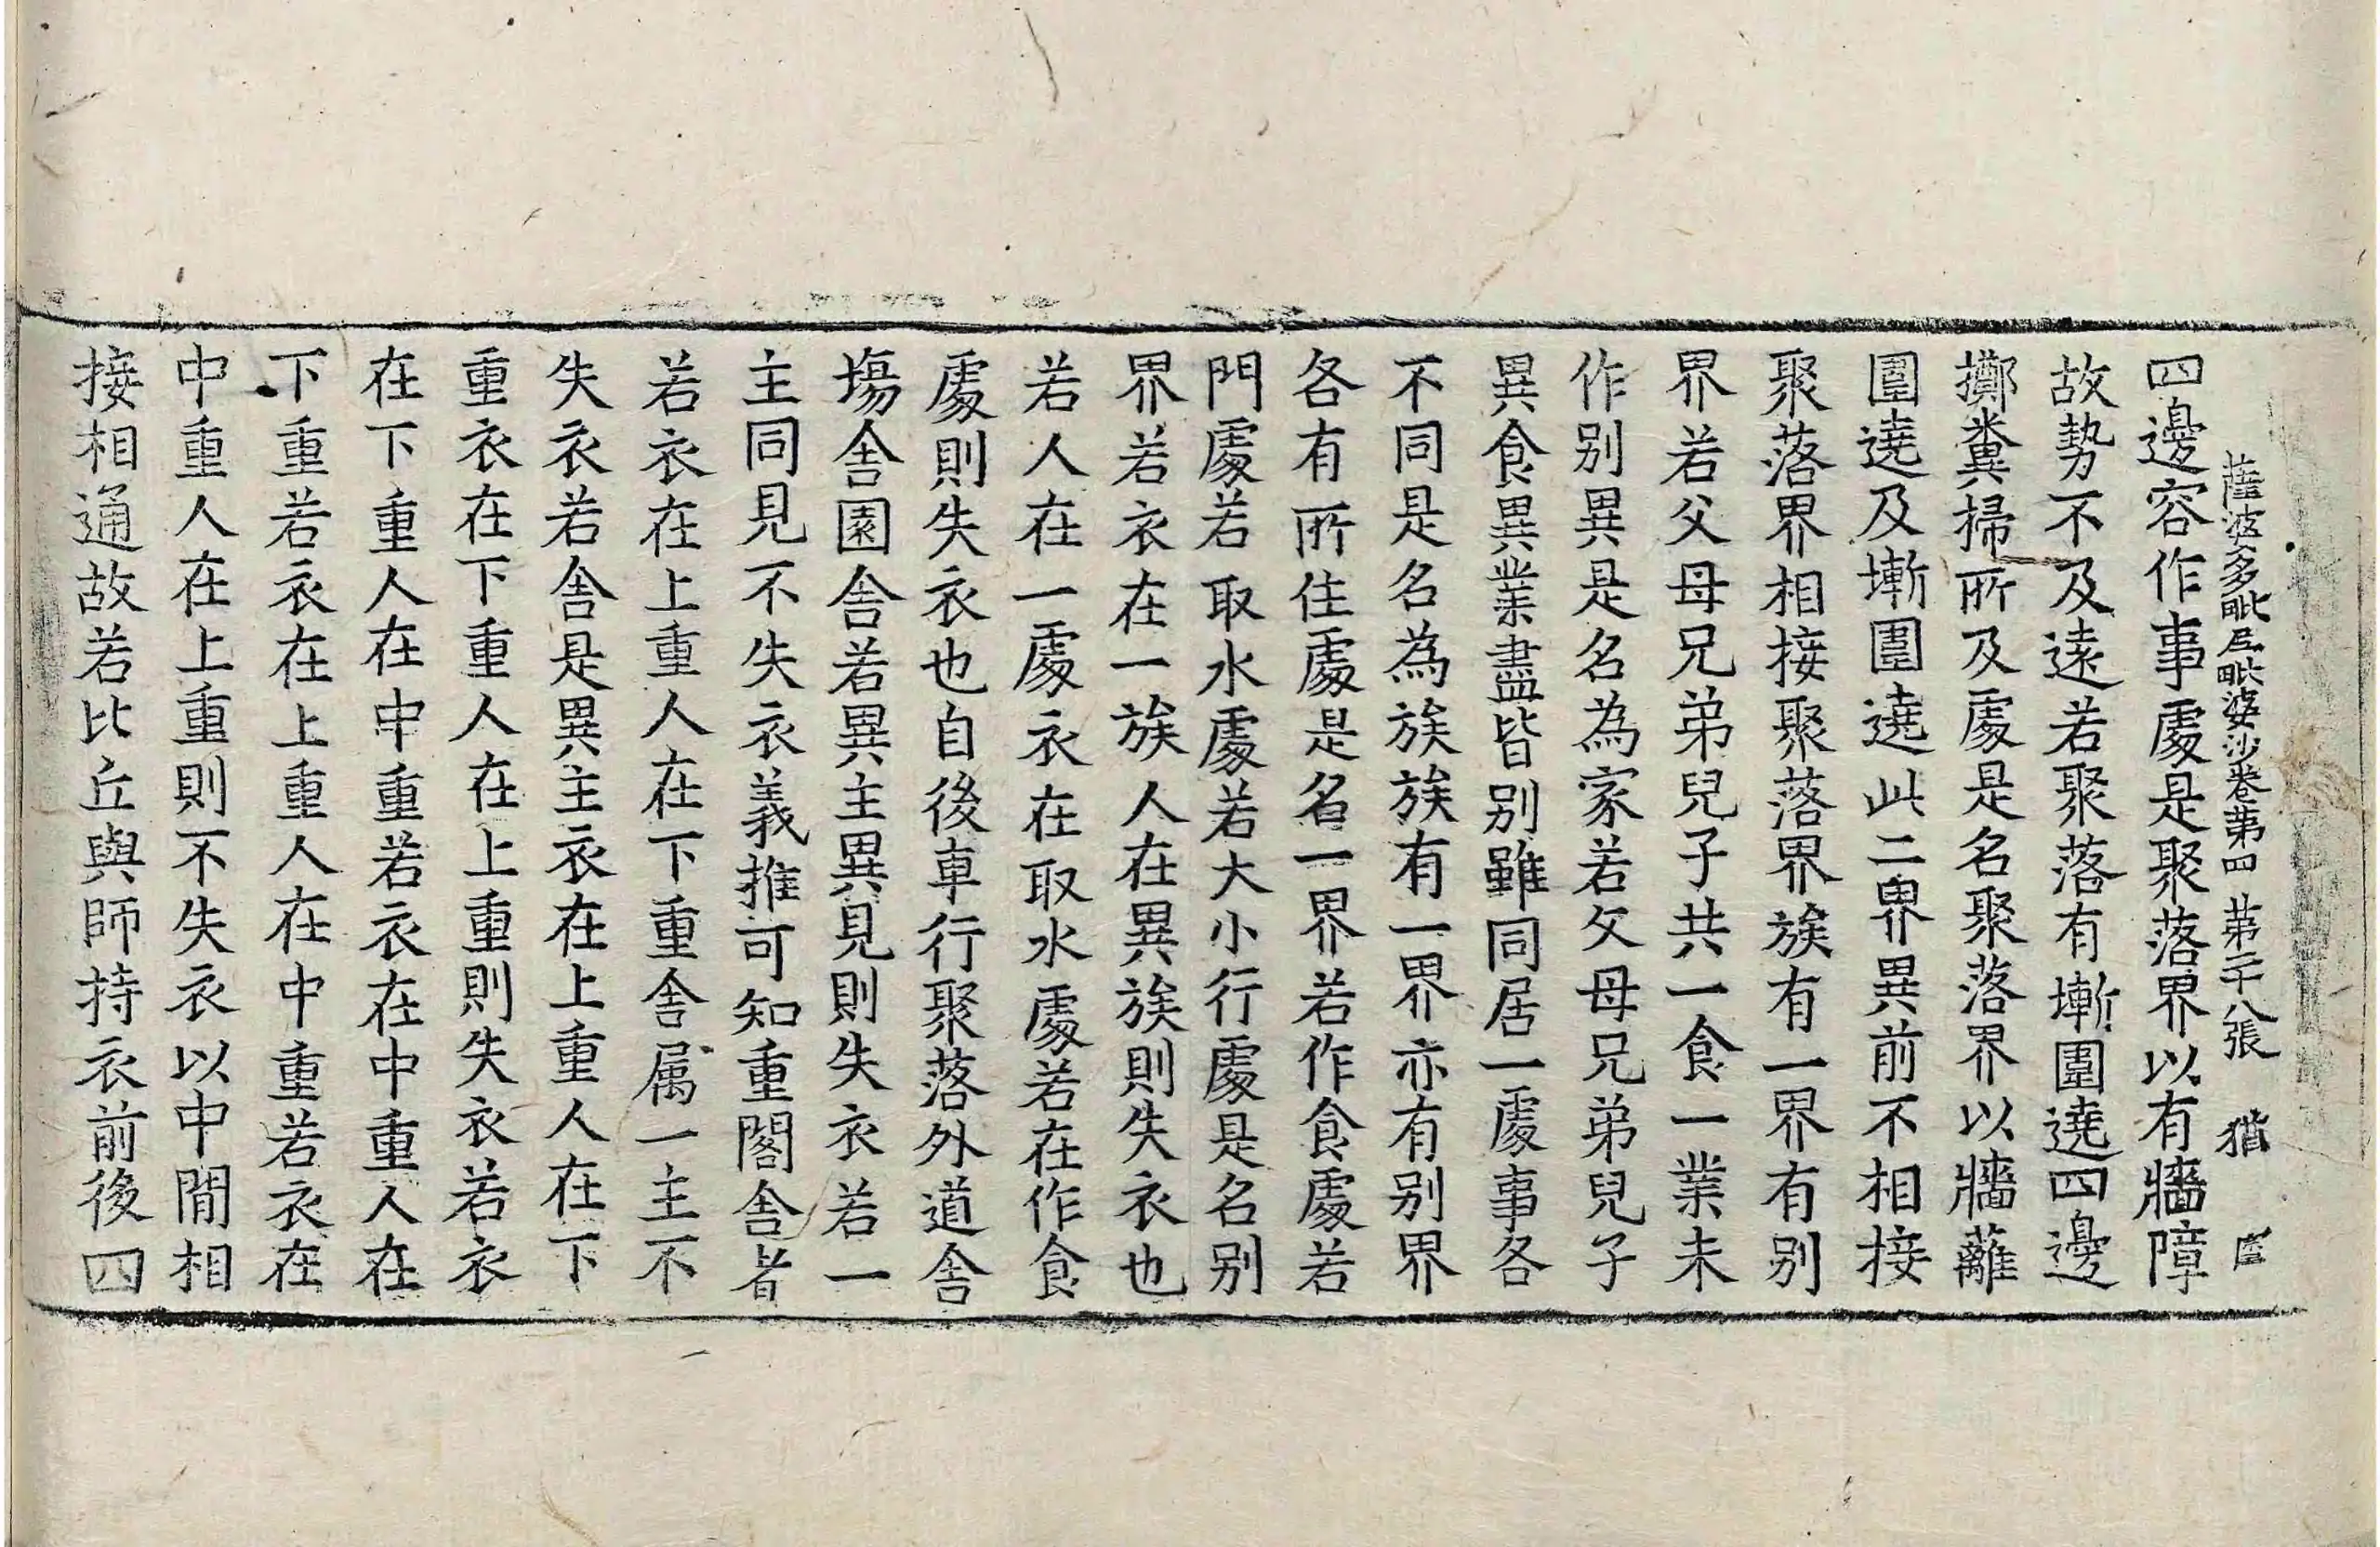 薩波多毗尼毗婆沙卷第四　第二十八張　猶
四邊容作事處是聚落界以有牆障
故勢不及遠若聚落有壍圍遶四邊
擲糞掃所及處是名聚落界以牆蘺
圍遶及壍圍遶此二界異前不相接
聚落界相接聚落界族有一界有别
界若父母兄弟兒子共一食一業未
作别異是名為家若父母兄弟兒子
異食異業盡皆别雖同居一處事各
不同是名為族族有一界亦有别界
各有所住處是名一界若作食處若
門處若取水處若大小行處是名别
界若衣在一族人在異族則失衣也
若人在一處衣在取水處若在作食
處則失衣也自後車行聚落外道舍
塲舍園舍若異主異見則失衣若一
主同見不失衣義推可知重閣舍者
若衣在上重人在下重舍属一主不
失衣若舍是異主衣在上重人在下
重衣在下重人在上重則失衣若衣
在下重人在中重若衣在中重人在
下重若衣在上重人在中重若衣在
中重人在上重則不失衣以中間相
接相通故若比丘與師持衣前後四